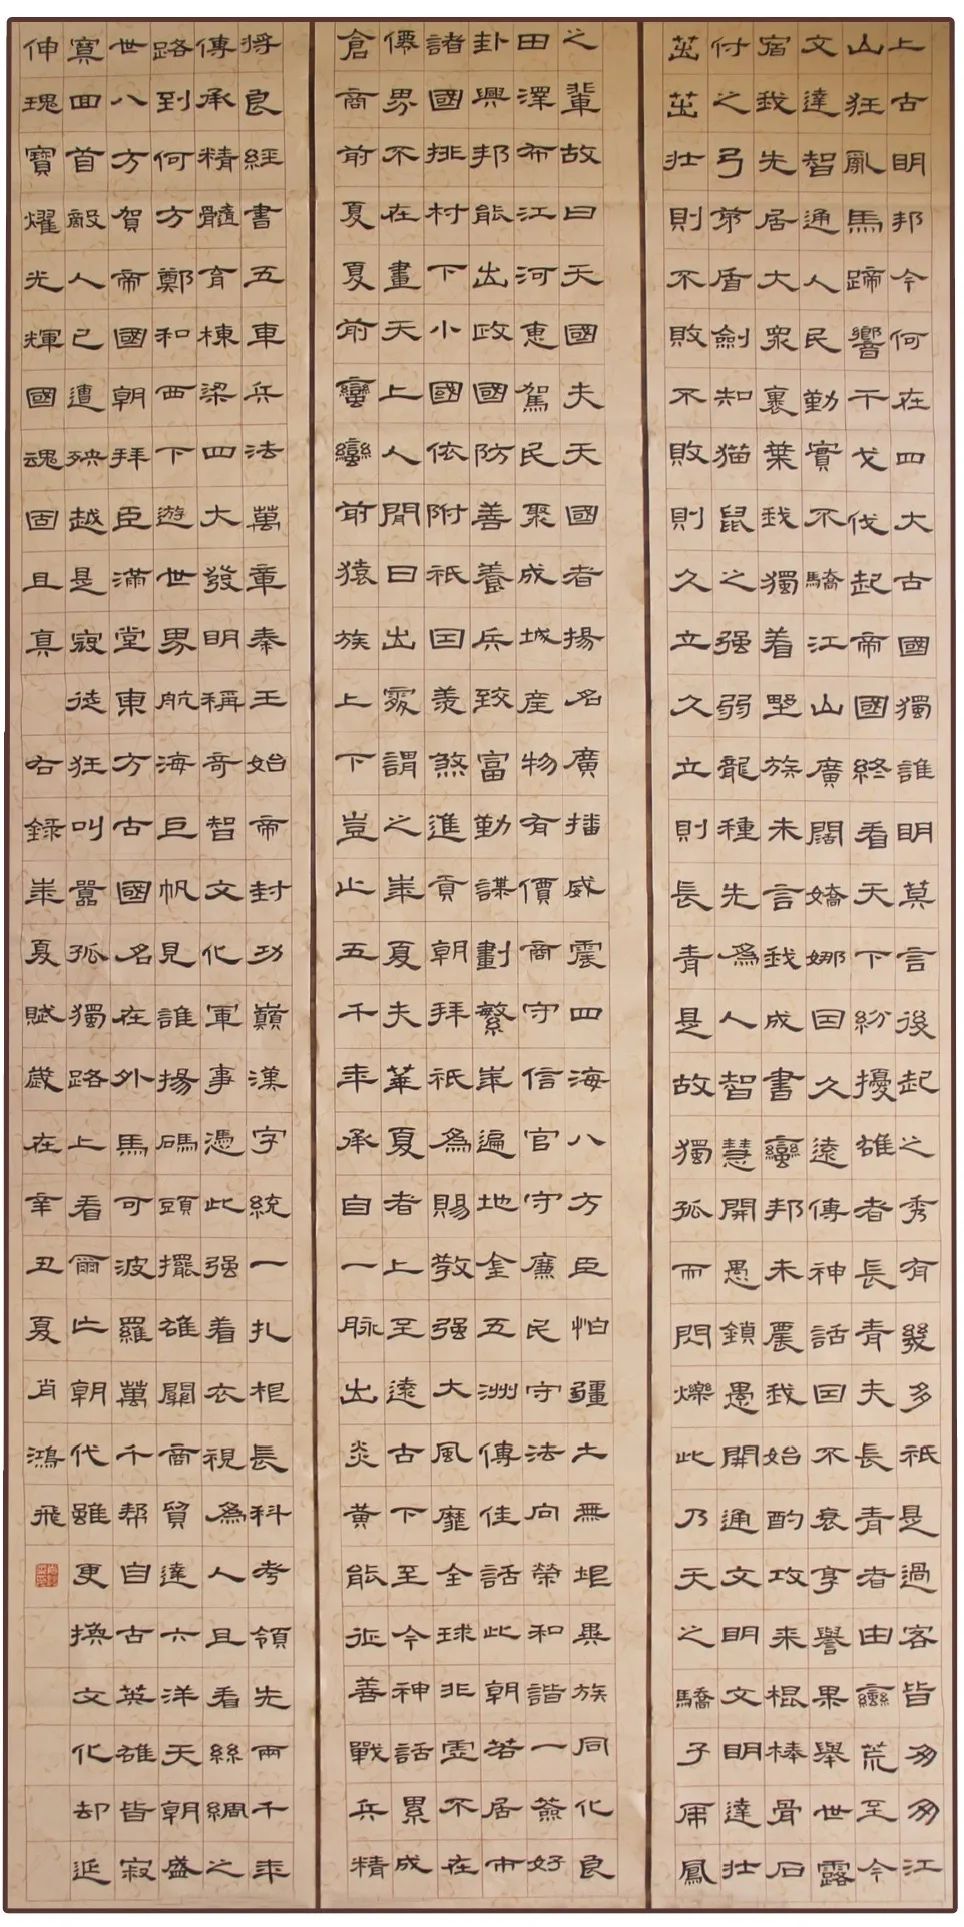 上古明邦今何在四大古國獨誰明莫言後起之秀有幾多祇是過客皆匆匆江
山狂亂馬蹄響干戈伐起帝國終看天下紛擾雄者長青夫長青者由蠻荒至今
文達智通人民勤實不驕江山廣闊嬌娜因久遠傳神話因不衰享譽果舉世露
宿我先居大眾裹葉我獨着墅族未言我成書蠻邦未農我始酌攻來棍棒骨石
付之弓第盾劍知猫鼠之强弱龍種先為人智慧開愚鎖愚開通文明文明達壯
茁茁壯則不敗不敗則久立久立則長青是故獨孤而閃爍此乃天之驕子鳳
之輩故曰天國夫天國者揚名廣播威震四海八方臣怕疆土無垠異族同化良
田澤布江河惠駕民聚成城產物有價商守信官守廉民守法向榮和諧一好
卦興邦能出政國防善養兵致富勤謀劃繁華遍地金五洲傳佳話此朝若居市
諸國排村下小國依附祇因羨煞進貢朝拜祇為賜教强大風靡全球非虛不在
僊界不在畫天上人間曰出處謂之華夏夫華夏者上至遠古下至今神話累成
倉商前夏夏前蠻蠻前猿族上下豈止五千年承自一脈出炎黃能征善戰兵精
將良經書五車兵法萬章秦王始帝封功巔漢字統一扎根長科考領先兩千年
傳承精髓育棟梁四大發明稱奇智文化軍事憑此强着衣視為人且看絲綢之
路到何方鄭和西下遊世界航海巨帆見誰揚碼頭擺雄關商貿達六洋天朝盛
世八方賀帝國朝拜臣滿堂東方古國名在外馬可波羅萬千帮自古英雄皆寂
寞回首敵人已遭殃越是寂徒狂叫囂孤獨路上看爾止朝代雖更換文化却延
伸瑰寶耀光輝國魂固且真
右錄華夏賦歲在辛丑夏肖鴻飛